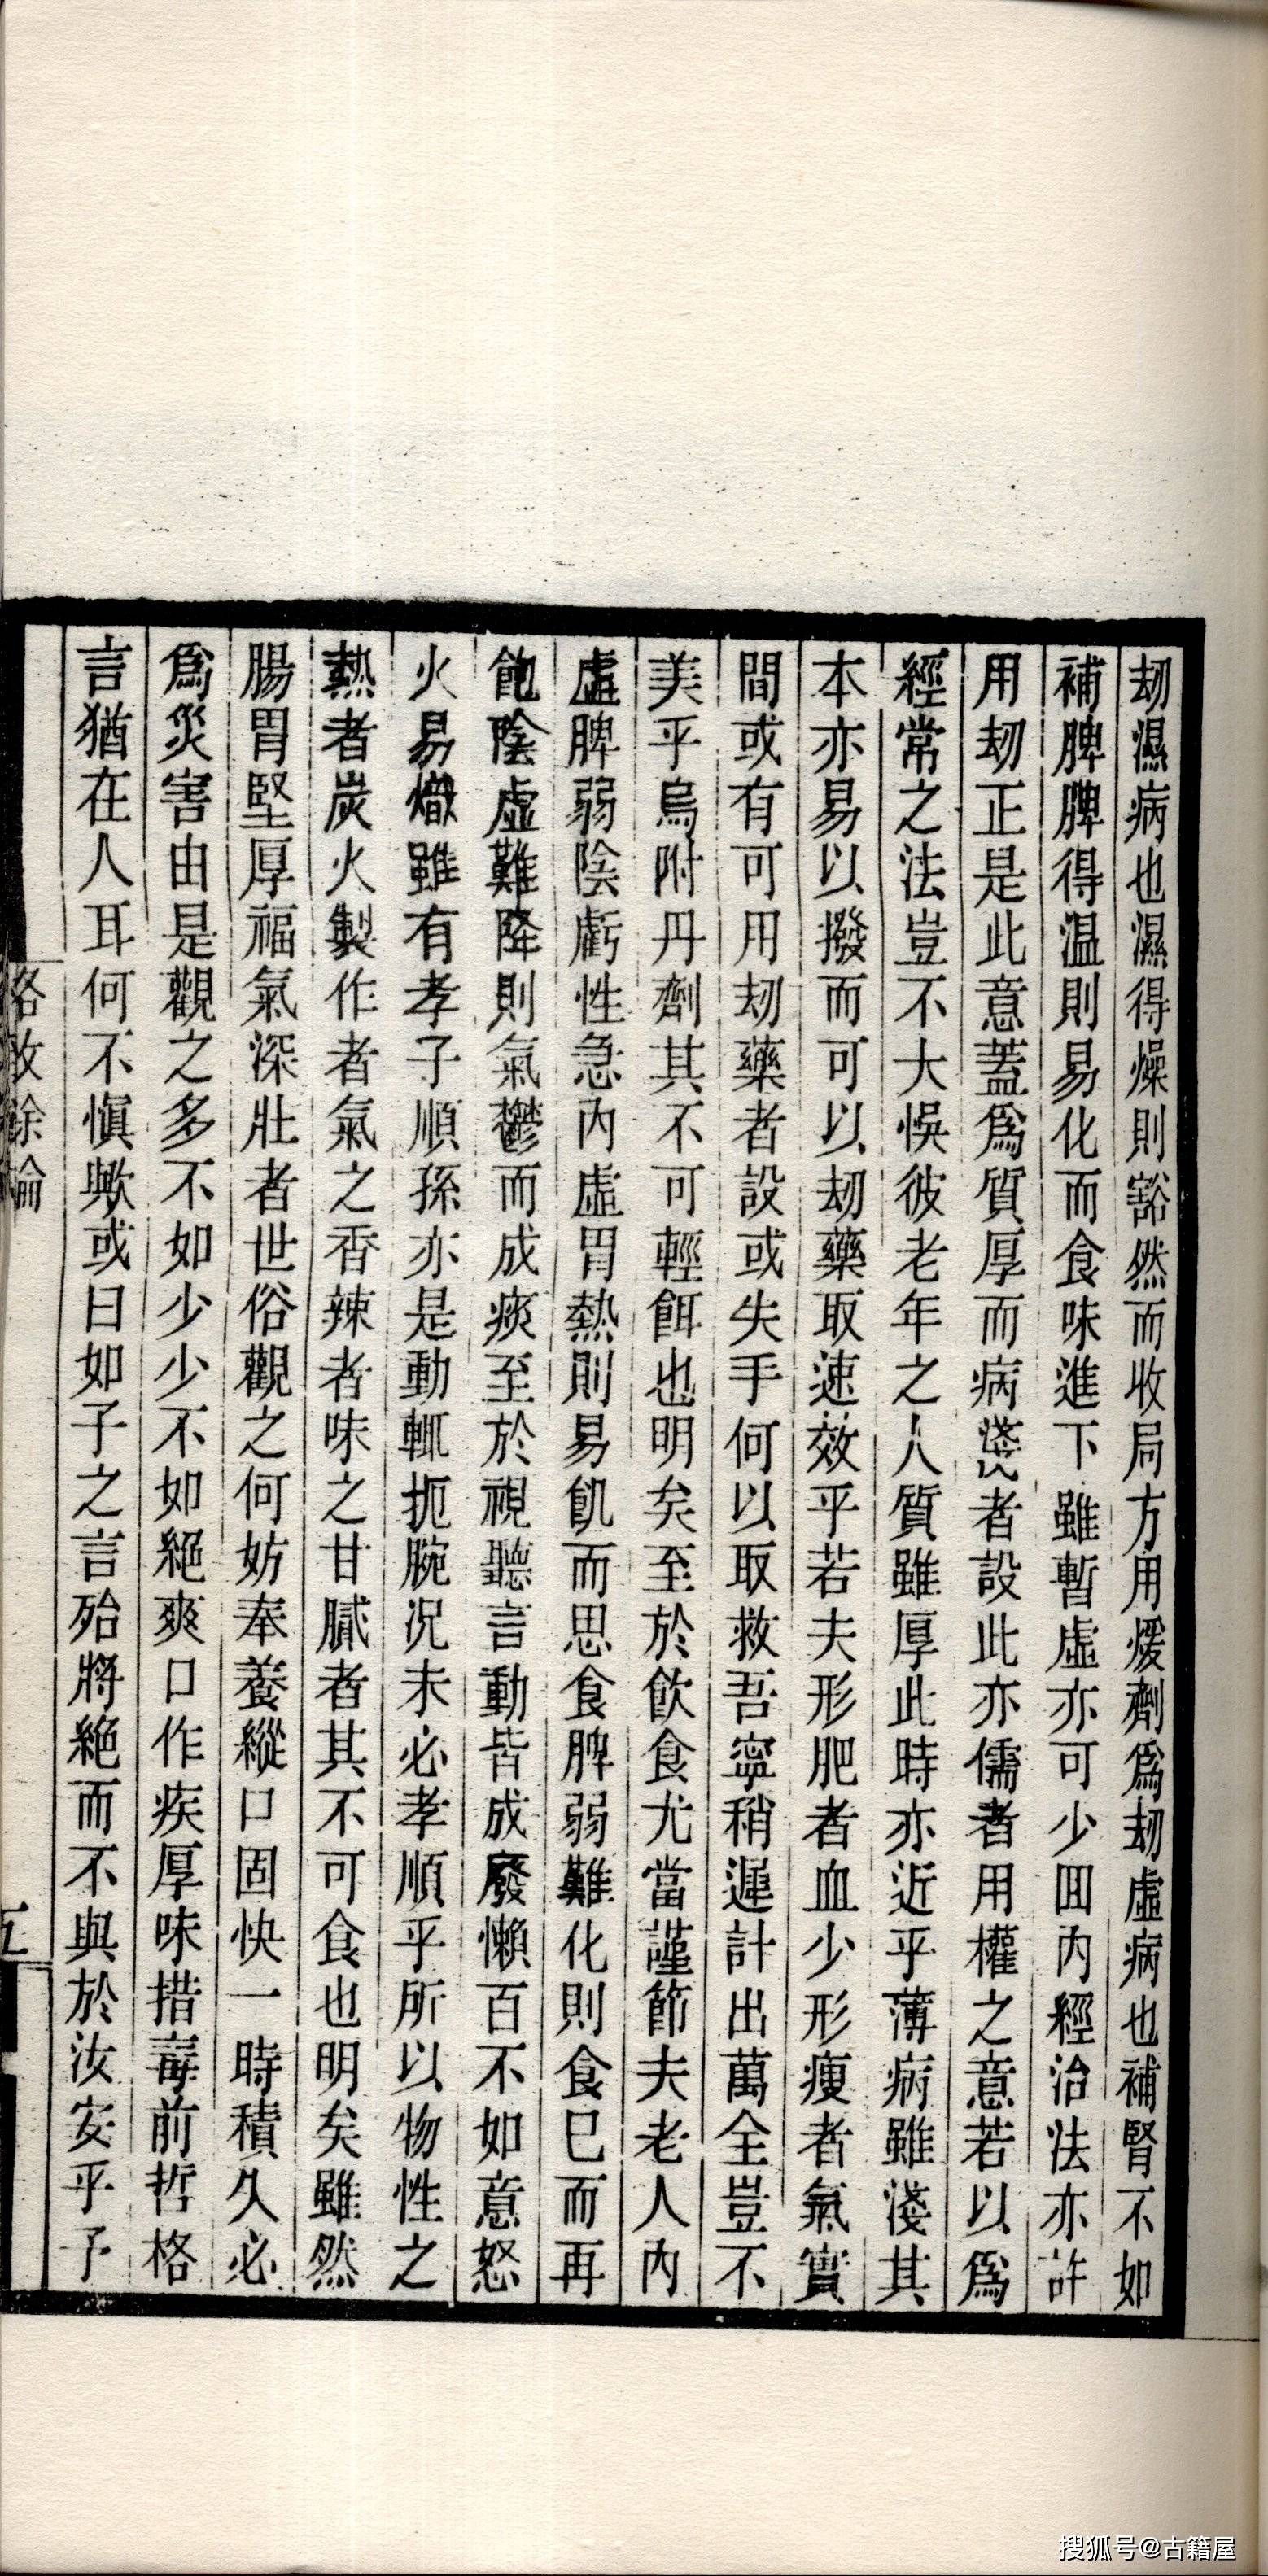 劫濕病也濕得燥則豁然而收局方用煖劑爲劫虛病也補腎不如
補脾脾得温則易化而食味進下雖暫虛亦可少回内經治法亦許
用劫正是此意蓋爲質厚而病淺者設此亦儒者用權之意若以爲
經常之法豈不大悞彼老年之人質雖厚此時亦近乎薄病雖淺其
本亦易以撥而可以劫藥取速效乎若夫形肥者血少形瘦者氣實
間或有可用劫藥者設或失手何以取救吾寧稍遲計出萬全豈不
美乎烏附丹劑其不可輕餌也明矣至於飲食尤當謹節夫老人内
虛脾弱陰虧性急内虛胃熱則易飢而思食脾弱難化則食已而再
飽陰虛難降則氣鬱而成痰至於視聽言動皆成廢懶百不如意怒
火易熾雖有孝子順孫亦是動輒扼腕況未必孝順乎所以物性之
熱者炭火製作者氣之香辣者味之甘膩者其不可食也明矣雖然
腸胃堅厚福氣深壯者世俗觀之何妨奉養縱口固快一時積久必
爲災害由是觀之多不如少少不如絕爽口作疾厚味措毒前哲格
言猶在人耳何不慎歟或曰如子之言殆將絕而不與於汝安乎予
格致餘論
五
搜狐号@古籍屋